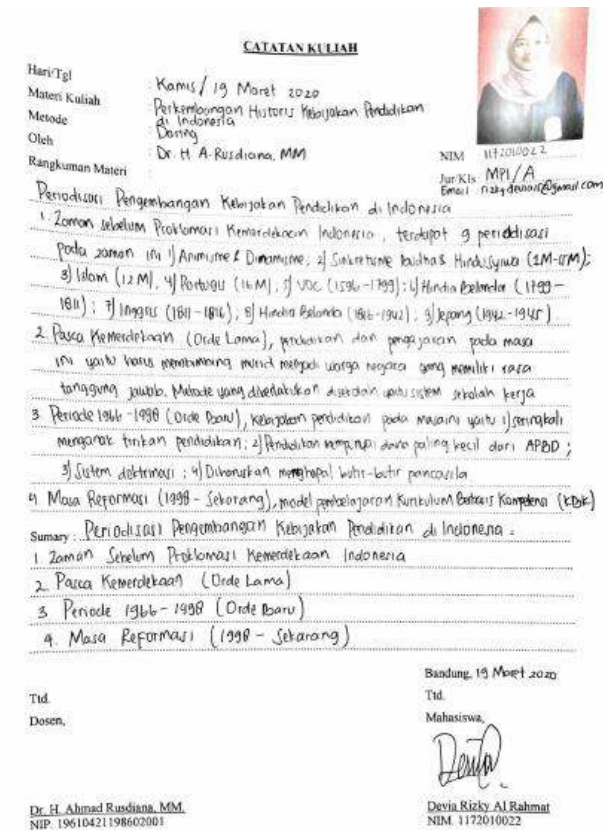 CATATAN KULIAH
Hari/Tgl : Kamis / 19 Maret 2020
Materi Kuliah : Perkembangan Historis Kebijakan Pendidikan di Indonesia
Metode : Daring
Oleh : Dr. H. A. Rusdiana, MM
NIM 1172010022
Jur/Kls MPI/A
Email :
Rangkuman Materi
Periodisasi Pengembangan Kebijakan Pendidikan di Indonesia
1. Zaman sebelum Proklamasi Kemerdekaan Indonesia, terdapat 9 periodisasi
pada zaman ini 1) Animisme & Dinamisme; 2) Sinkretisme Budha & Hindu Syiwa
3) Islam (12 M), 4) Portugis (16 M), 5) VOC (1596-1799); 6) Hindia Belanda (1799-
1811); 7) Inggris (1811-1816); 8) Hindia Belanda (1816-1942); 9) Jepang (1942-1945).
2. Pasca Kemerdekaan (Orde Lama), pendidikan dan pengajaran pada masa
ini yaitu harus membimbing murid menjadi warga negara yang memiliki rasa
tanggung jawab. Metode yang diberlakukan disekolah yaitu sistem sekolah kerja
3 Periode 1966-1998 (Orde Baru), Kebijakan pendidikan pada masa ini yaitu 1) seringkali
menganak tirikan pendidikan; 2) Pendidikan mempunyai dana paling kecil dari APBD;
3) Sistem doktrinasi; 4) Diharuskan menghapal butir-butir pancasila
4 Masa Reformasi (1998 - Sekarang), model pembelajaran Kurikulum Berbasis Kompetensi
Sumary : Periodisasi Pengembangan Kebijakan Pendidikan di Indonesia =
1. Zaman Sebelum Proklamasi Kemerdekaan Indonesia
2. Pasca Kemerdekaan (Orde Lama)
3 Periode 1966-1998 (Orde Baru)
4. Masa Reformasi (1998 - Sekarang)
Bandung, 19 Maret 2020
Ttd.
Ttd.
Dosen,
Mahasiswa,
Dr. H. Ahmad Rusdiana, MM.
NIP. 19610421198602001
Devia Rizky Al Rahmat
NIM. 1172010022